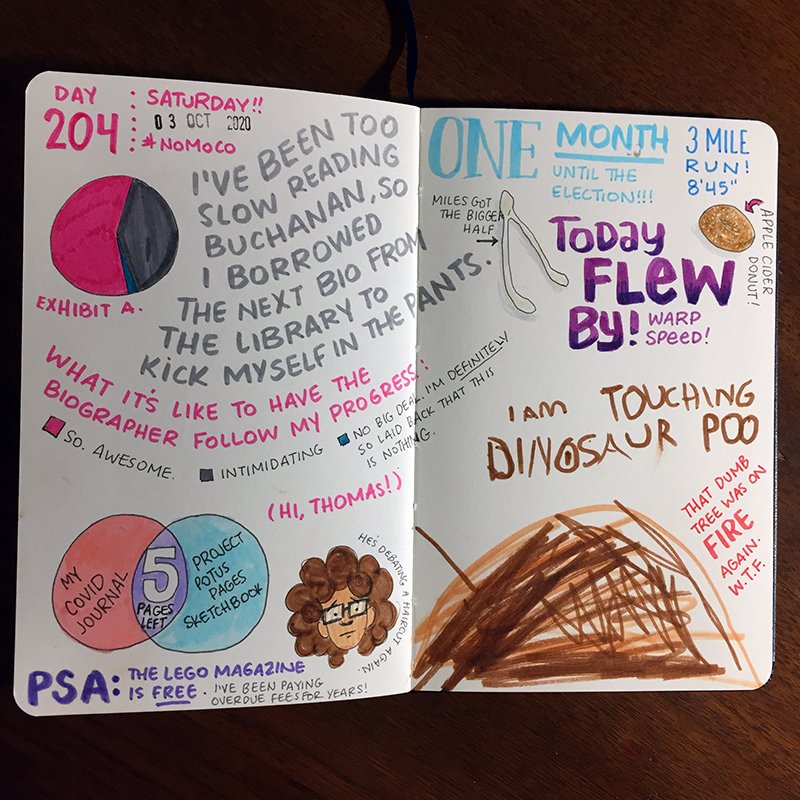 DAY
204
SATURDAY!!
03 OCT 2020
#NOMOCO
I'VE BEEN TOO
SLOW READING
BUCHANAN, SO
I BORROWED
THE NEXT BIO FROM
THE LIBRARY TO
KICK MYSELF IN THE PANTS.
EXHIBIT A.
WHAT IT'S LIKE TO HAVE THE
BIOGRAPHER FOLLOW MY PROGRESS!
SO. AWESOME.
INTIMIDATING
NO BIG DEAL. I'M DEFINITELY
SO LAID BACK THAT THIS
IS NOTHING.
(HI, THOMAS!)
MY
COVID
JOURNAL
5
PAGES
LEFT
PROJECT
POTUS
PAGES
SKETCHBOOK
HE'S DEBATING A HAIRCUT AGAIN.
PSA: THE LEGO MAGAZINE
IS FREE. I'VE BEEN PAYING
OVERDUE FEES FOR YEARS!
ONE MONTH
UNTIL THE
ELECTION!!!
3 MILE
RUN!
8'45"
MILES GOT
THE BIGGER
HALF
APPLE CIDER
DONUT!
TODAY
FLEW
BY! WARP
SPEED!
I AM TOUCHING
DINOSAUR POO
THAT DUMB
TREE WAS ON
FIRE
AGAIN.
W.T.F.